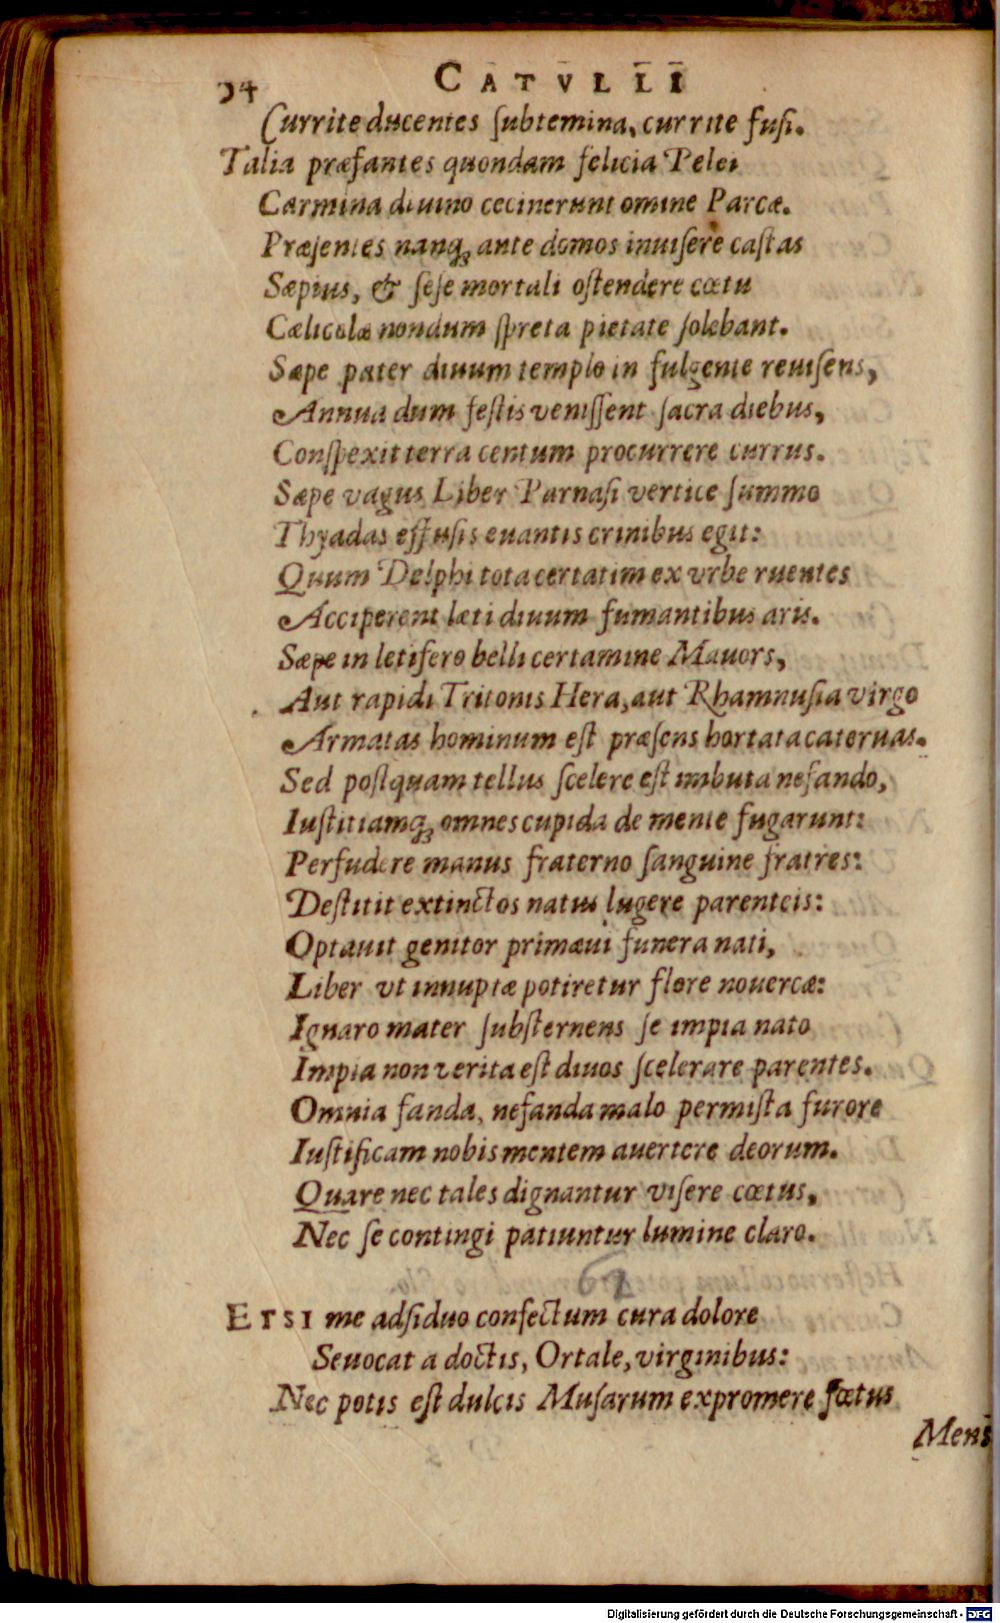 54
CATVLLI
Currite ducentes ſubtemina, currite fuſi.
Talia præfantes quondam felicia Pelei
Carmina diuino cecinerunt omine Parcæ.
Præſentes nanq; ante domos inuiſere caſtas
Sæpius, & ſeſe mortali oſtendere cœtu
Cælicolæ nondum ſpreta pietate ſolebant.
Sæpe pater diuum templo in fulgente reuiſens,
Annua dum feſtis veniſſent ſacra diebus,
Conſpexit terra centum procurrere currus.
Sæpe vagus Liber Parnaſi vertice ſummo
Thyadas effuſis euantis crinibus egit:
Quum Delphi tota certatim ex vrbe ruentes
Acciperent læti diuum fumantibus aris.
Sæpe in letifero belli certamine Mauors,
Aut rapidi Tritonis Hera, aut Rhamnuſia virgo
Armatas hominum eſt præſens hortata cateruas.
Sed poſtquam tellus ſcelere eſt imbuta nefando,
Iuſtitiamq; omnes cupida de mente fugarunt:
Perfudere manus fraterno ſanguine fratres:
Deſtitit extinctos natus lugere parenteis:
Optauit genitor primæui funera nati,
Liber vt innuptæ potiretur flore nouercæ:
Ignaro mater ſubſternens ſe impia nato
Impia non verita eſt diuos ſcelerare parentes.
Omnia fanda, nefanda malo permiſta furore
Iuſtificam nobis mentem auertere deorum.
Quare nec tales dignantur viſere cœtus,
Nec ſe contingi patiuntur lumine claro.
ETSI me adſiduo confectum cura dolore
Seuocat a doctis, Ortale, virginibus:
Nec potis eſt dulcis Muſarum expromere fœtus
Mens
Digitalisierung gefördert durch die Deutsche Forschungsgemeinschaft - DFG